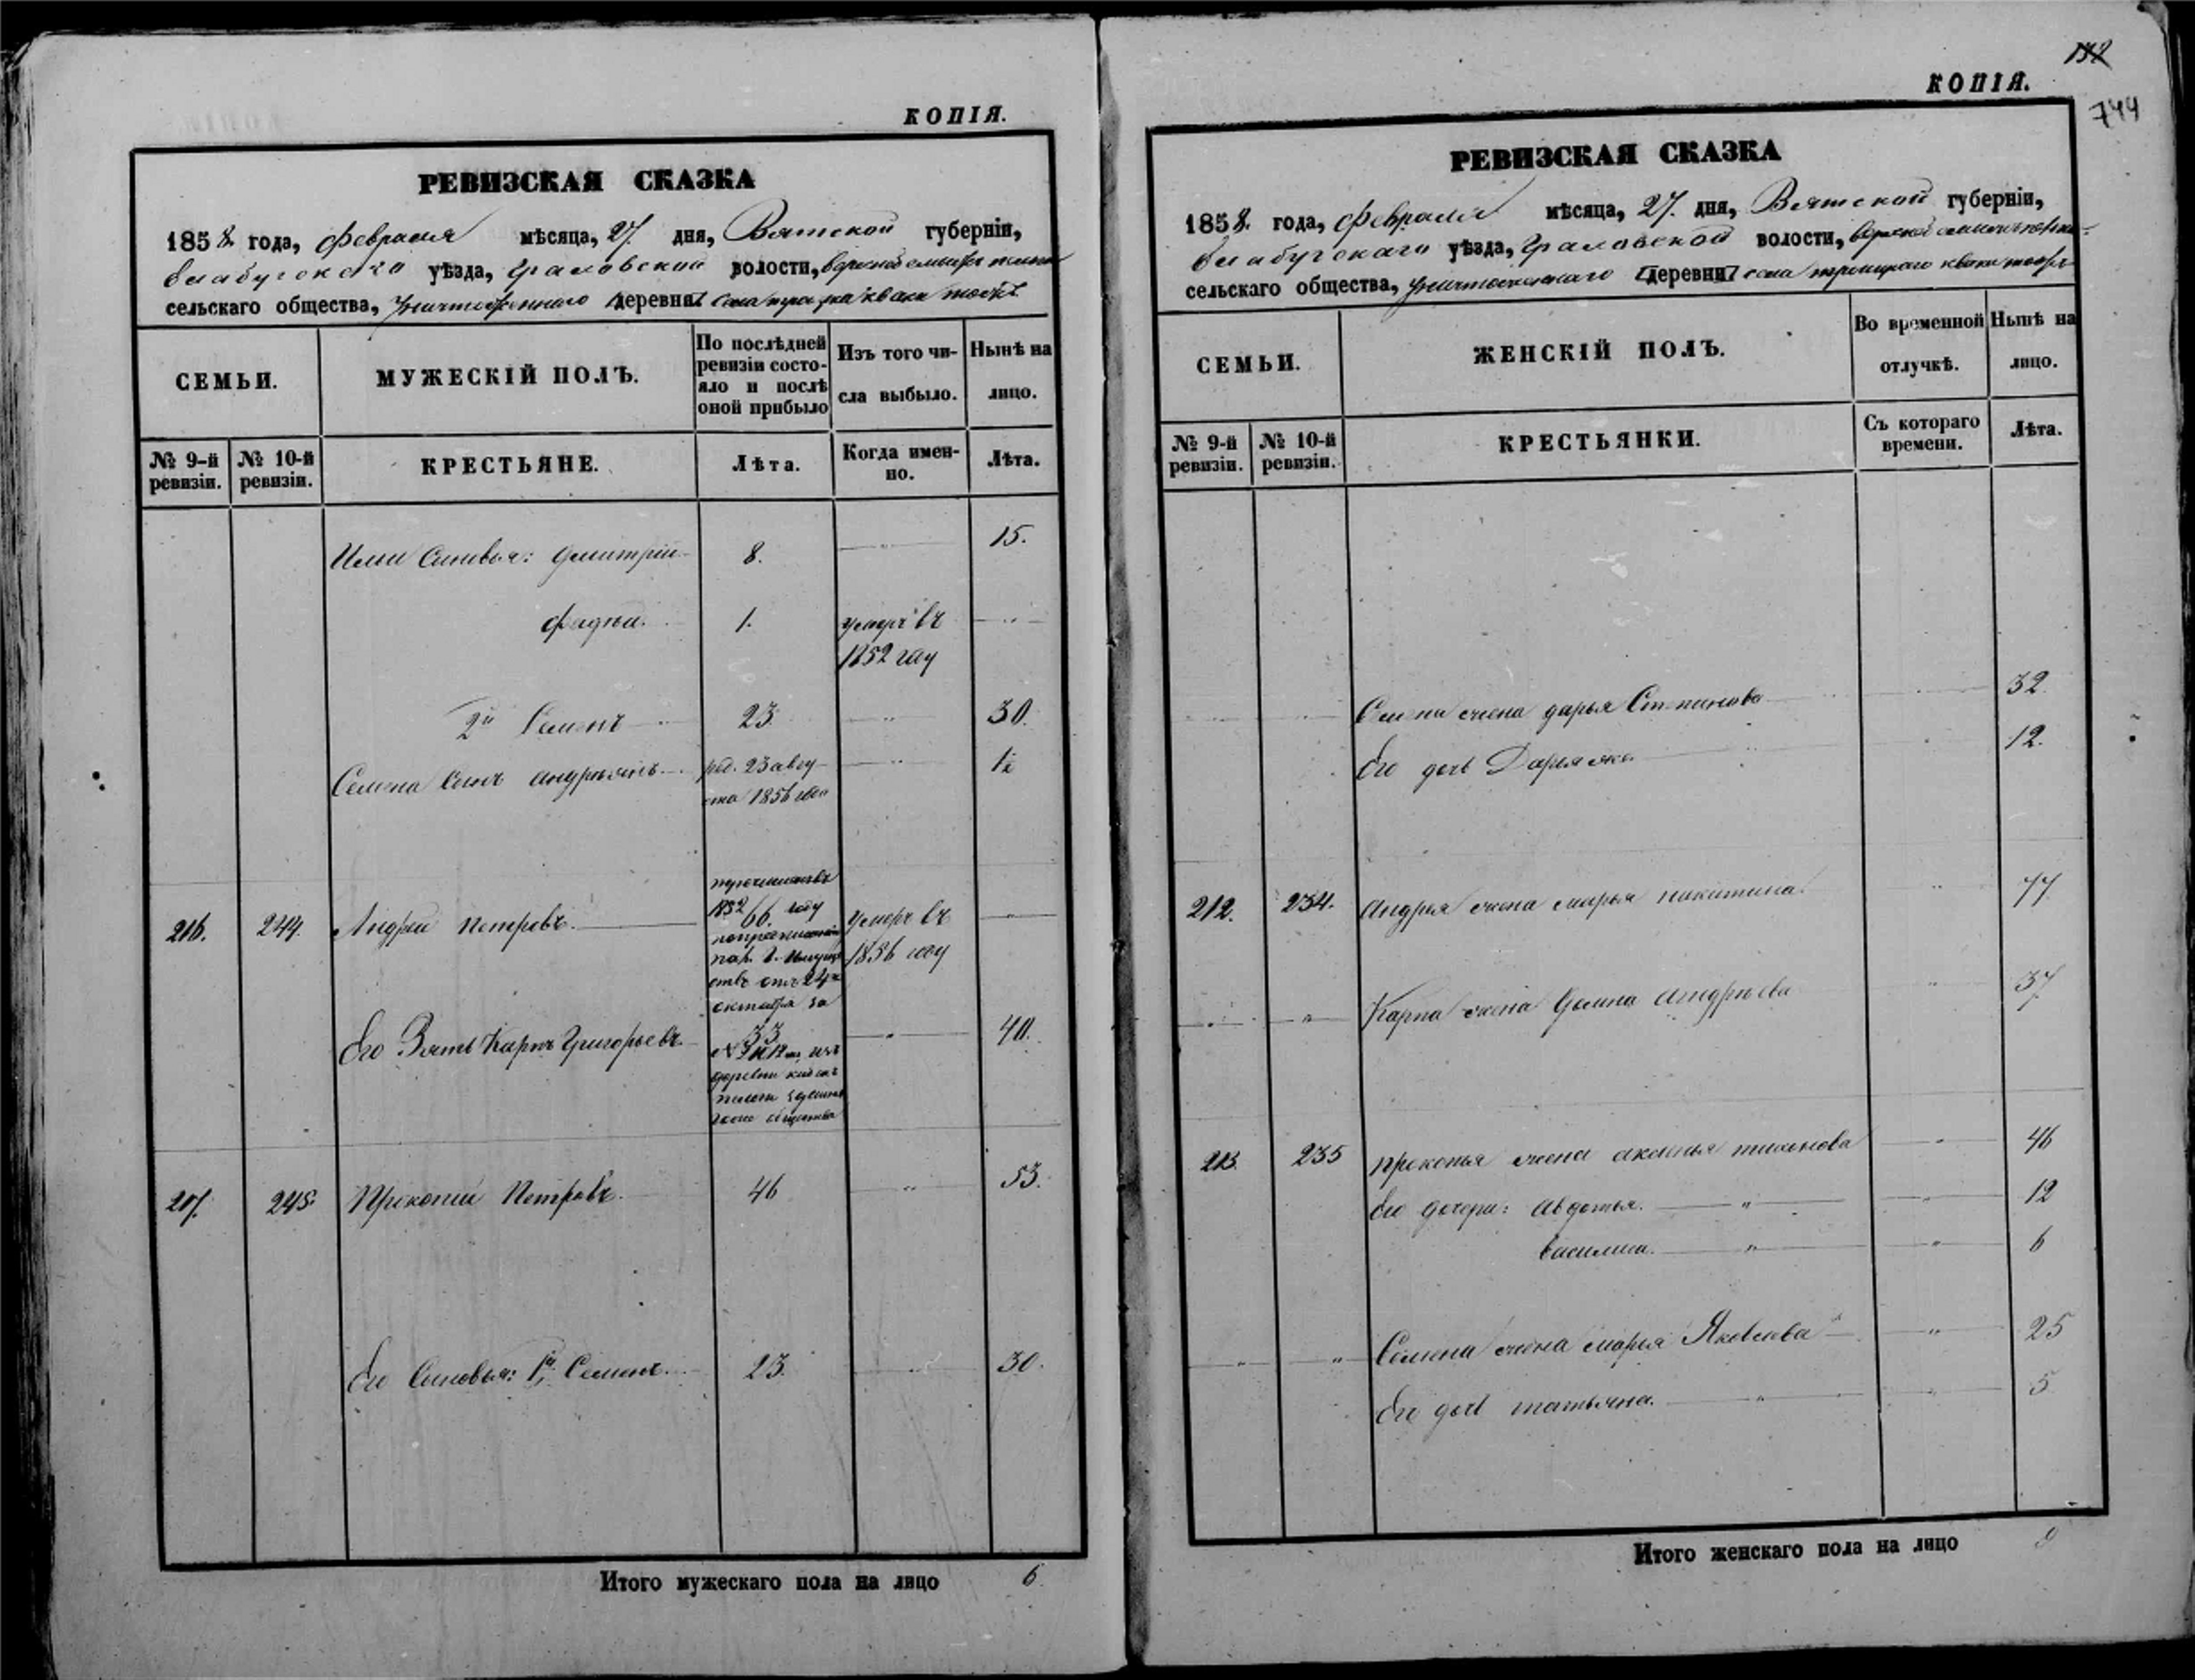 КОПІЯ.
РЕВИЗСКАЯ СКАЗКА
1858 года, февраля мѣсяца, 27. дня, Вятской губерніи,
Елабугскаго уѣзда, Граховской волости,
сельскаго общества, деревни села
СЕМЬИ.
МУЖЕСКІЙ ПОЛЪ.
По послѣдней ревизіи состо-
яло и послѣ
оной прибыло
Изъ того чи-
сла выбыло.
Нынѣ на
лицо.
№ 9-й
ревизіи.
№ 10-й
ревизіи.
КРЕСТЬЯНЕ.
Лѣта.
Когда имен-
но.
Лѣта.
Сыновья: Дмитрій 8. " 15.
Фадѣй. 1. умеръ въ "
1852 году
2й Семенъ 23 " 30.
Семена Сынъ Андреянъ род. 23 авгу- " 1½
ста 1856 года
216. 244. Андрей Петровъ. 1852 году умеръ въ
66. 1856 году
отъ 24
октября за
Его Зять Карпъ Григорьевъ. 33 " 40.
изъ
деревни
общества
217. 245. Прокопий Петровъ. 46 " 53.
Его Сыновья: 1й Семенъ. 23. " 30.
Итого мужескаго пола на лицо 6.
132
КОПІЯ.
744
РЕВИЗСКАЯ СКАЗКА
1858. года, февраля мѣсяца, 27. дня, Вятской губерніи,
Елабугскаго уѣзда, Граховской волости,
сельскаго общества, деревни села
СЕМЬИ.
ЖЕНСКІЙ ПОЛЪ.
Во временной
отлучкѣ.
Нынѣ на
лицо.
№ 9-й
ревизіи.
№ 10-й
ревизіи.
КРЕСТЬЯНКИ.
Съ котораго
времени.
Лѣта.
Семена жена Дарья Степанова 32.
Его дочь Дарья же. 12.
212. 234. Андрея жена Марья Никитина. " 77.
" " Карпа жена Домна Андрѣева " 37
213. 235 Прокопья жена Аксинья Тихонова " 46
Его дочери: Авдотья. " " 12
Василиса. " " 6
" " Семена жена Марья Яковлева " 25
Его дочь Татьяна. " " 5
Итого женскаго пола на лицо 9